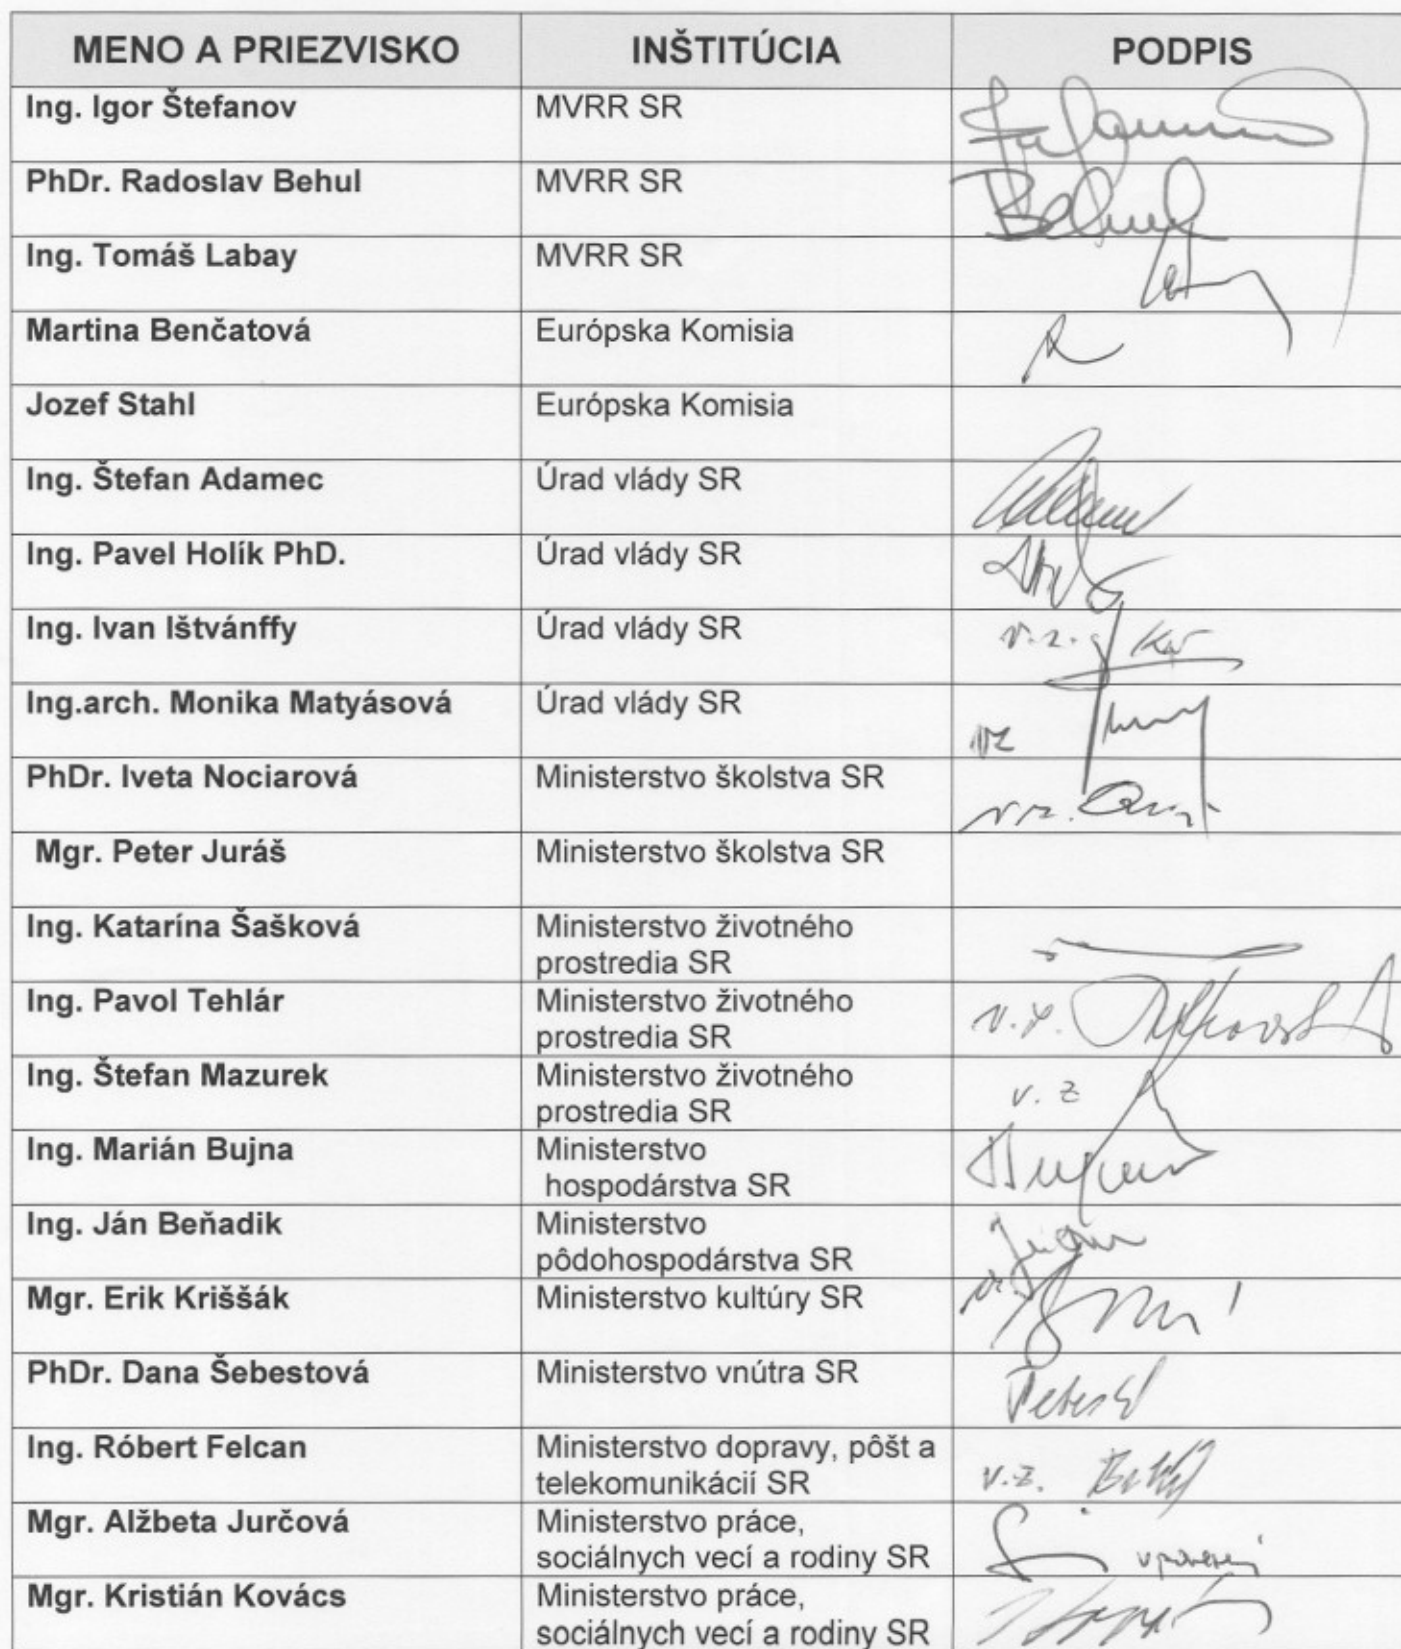 MENO A PRIEZVISKO INŠTITÚCIA PODPIS
Ing. Igor Štefanov MVRR SR
PhDr. Radoslav Behul MVRR SR
Behul
Ing. Tomáš Labay MVRR SR
Martina Benčatová Európska Komisia
Jozef Stahl Európska Komisia
Ing. Štefan Adamec Úrad vlády SR
Ing. Pavel Holík PhD. Úrad vlády SR
Ing. Ivan Ištvánffy Úrad vlády SR
v.z.
Ing.arch. Monika Matyásová Úrad vlády SR
vz
PhDr. Iveta Nociarová Ministerstvo školstva SR
v.z.
Mgr. Peter Juráš Ministerstvo školstva SR
Ing. Katarína Šašková Ministerstvo životného
prostredia SR
Ing. Pavol Tehlár Ministerstvo životného
prostredia SR
v.z.
Ing. Štefan Mazurek Ministerstvo životného
prostredia SR
v. z
Ing. Marián Bujna Ministerstvo
hospodárstva SR
Ing. Ján Beňadik Ministerstvo
pôdohospodárstva SR
Mgr. Erik Kriššák Ministerstvo kultúry SR
PhDr. Dana Šebestová Ministerstvo vnútra SR
Ing. Róbert Felcan Ministerstvo dopravy, pôšt a
telekomunikácií SR
v.z.
Mgr. Alžbeta Jurčová Ministerstvo práce,
sociálnych vecí a rodiny SR
Mgr. Kristián Kovács Ministerstvo práce,
sociálnych vecí a rodiny SR